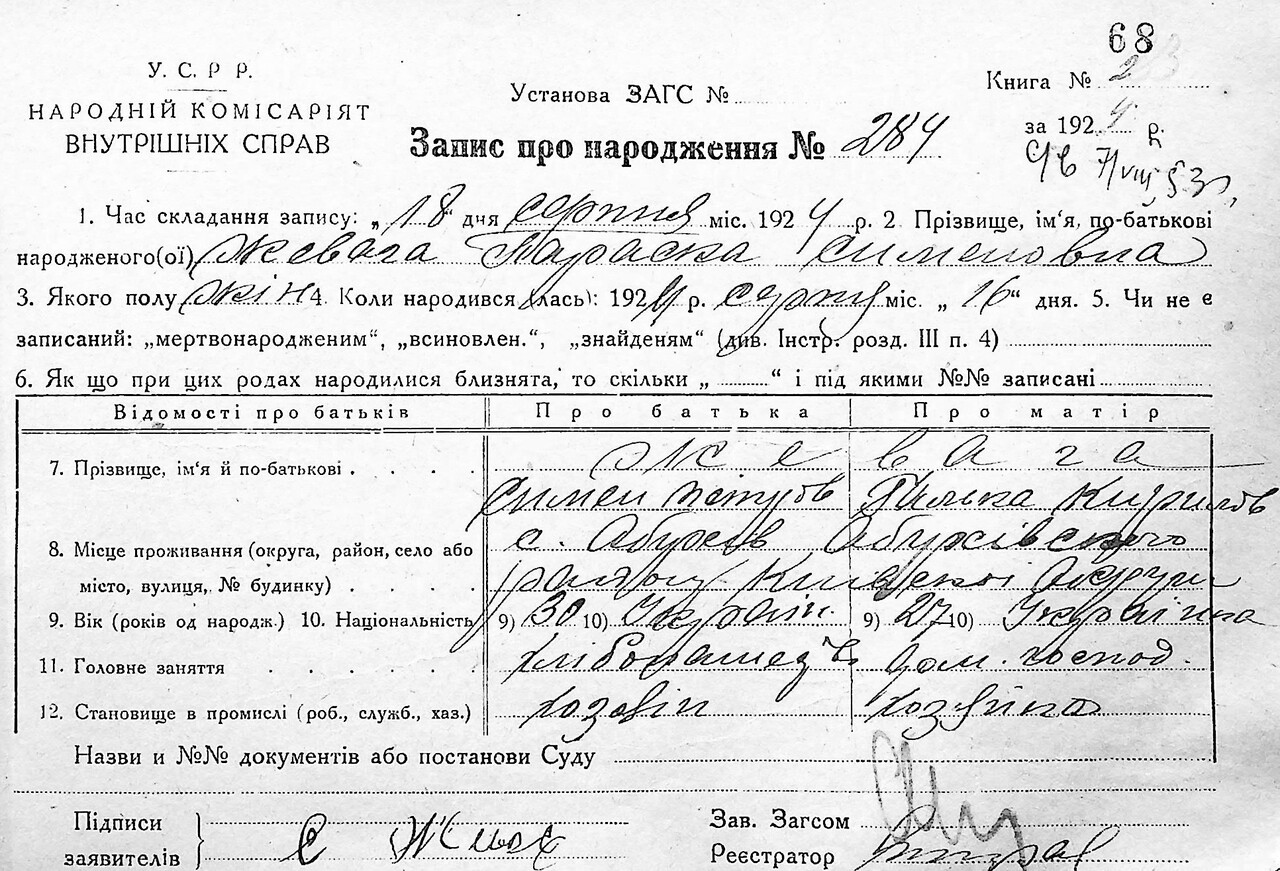 68
У. С. Р Р.
НАРОДНІЙ КОМІСАРІЯТ
ВНУТРІШНІХ СПРАВ
Установа ЗАГС №
Книга № 2
за 1924 р.
Запис про народження № 284
1. Час складання запису: „18" дня серпня міс. 1924 р. 2. Прізвище, ім'я, по-батькові
народженого(ої) Жевага Параска Сименовна
3. Якого полу жін 4. Коли народився (лась): 1924 р. серпня міс. „16" дня. 5. Чи не є
записаний: „мертвонародженим", „всиновлен.", „знайденям" (див. Інстр. розд. III п. 4)
6. Як що при цих родах народилися близнята, то скільки „ " і під якими №№ записані
Відомості про батьків Про батька Про матір
7. Прізвище, ім'я й по-батькові Жевага
Симен Петров Кирилов
8. Місце проживання (округа, район, село або с. Абухов Абухівського
місто, вулиця, № будинку) району Київскої округи
9. Вік (років од народж.) 10. Національність 9) 30 10) Україн. 9) 27 10) Українка
11. Головне заняття хлібопашец дом. господ.
12. Становище в промислі (роб., служб., хаз.) хозяін хозяйка
Назви и №№ документів або постанови Суду
Підписи
заявителів
Зав. Загсом
Реєстратор